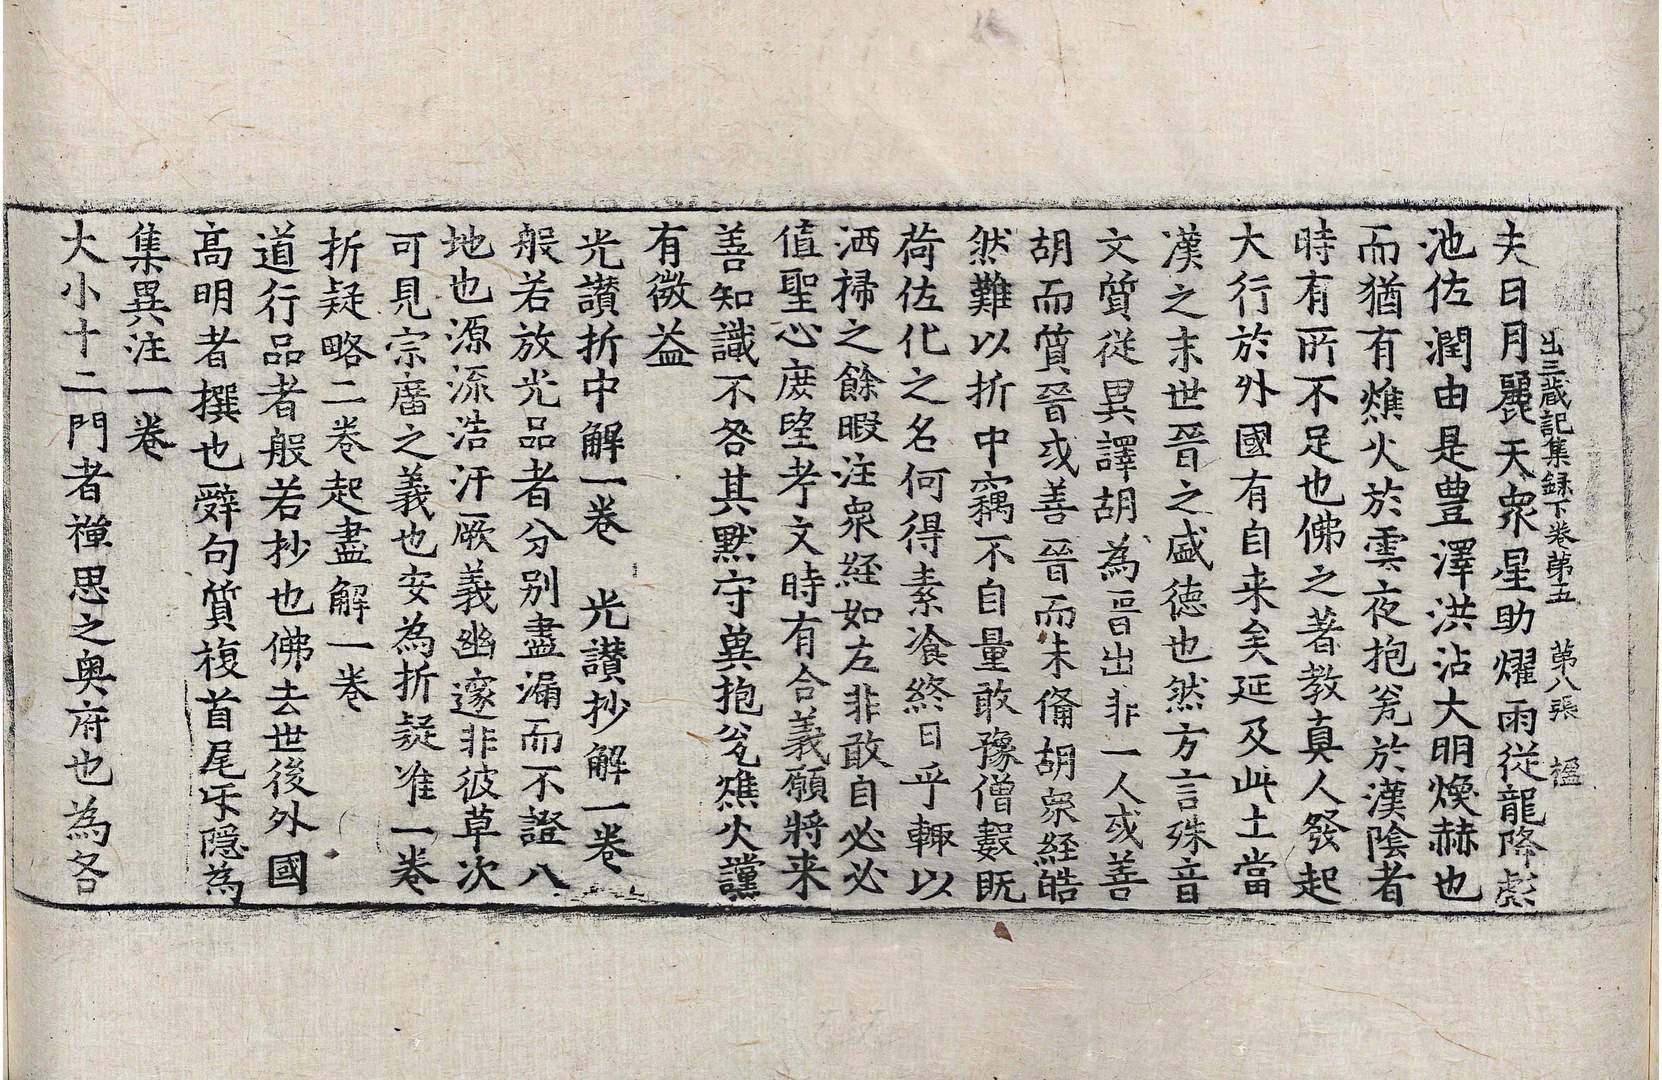 出三藏記集錄下卷第五　第八張　楹
夫日月麗天衆星助耀雨從龍降彪
池佐潤由是豊澤洪沾大明煥赫也
而猶有燋火於雲夜抱瓮於漢陰者
時有所不足也佛之著教真人發起
大行於外國有自来矣延及此土當
漢之末世晉之盛德也然方言殊音
文質從異譯胡為晉出非一人或善
胡而質晉或善晉而未備胡衆経皓
然難以折中竊不自量敢豫僧數既
荷佐化之名何得素飡終日乎輙以
洒掃之餘暇注衆経如左非敢自必必
值聖心庶望考文時有合義願将来
善知識不咎其默守兾抱瓮燋火讜
有微益
光讃折中解一卷　光讃抄解一卷
般若放光品者分别盡漏而不證八
地也源流浩汗厥義幽邃非彼草次
可見宗廇之義也安為折疑准一卷
折疑略二卷起盡解一卷
道行品者般若抄也佛去世後外國
高明者撰也辭句質複首尾㸦隱為
集異注一卷
大小十二門者禪思之奥府也為各